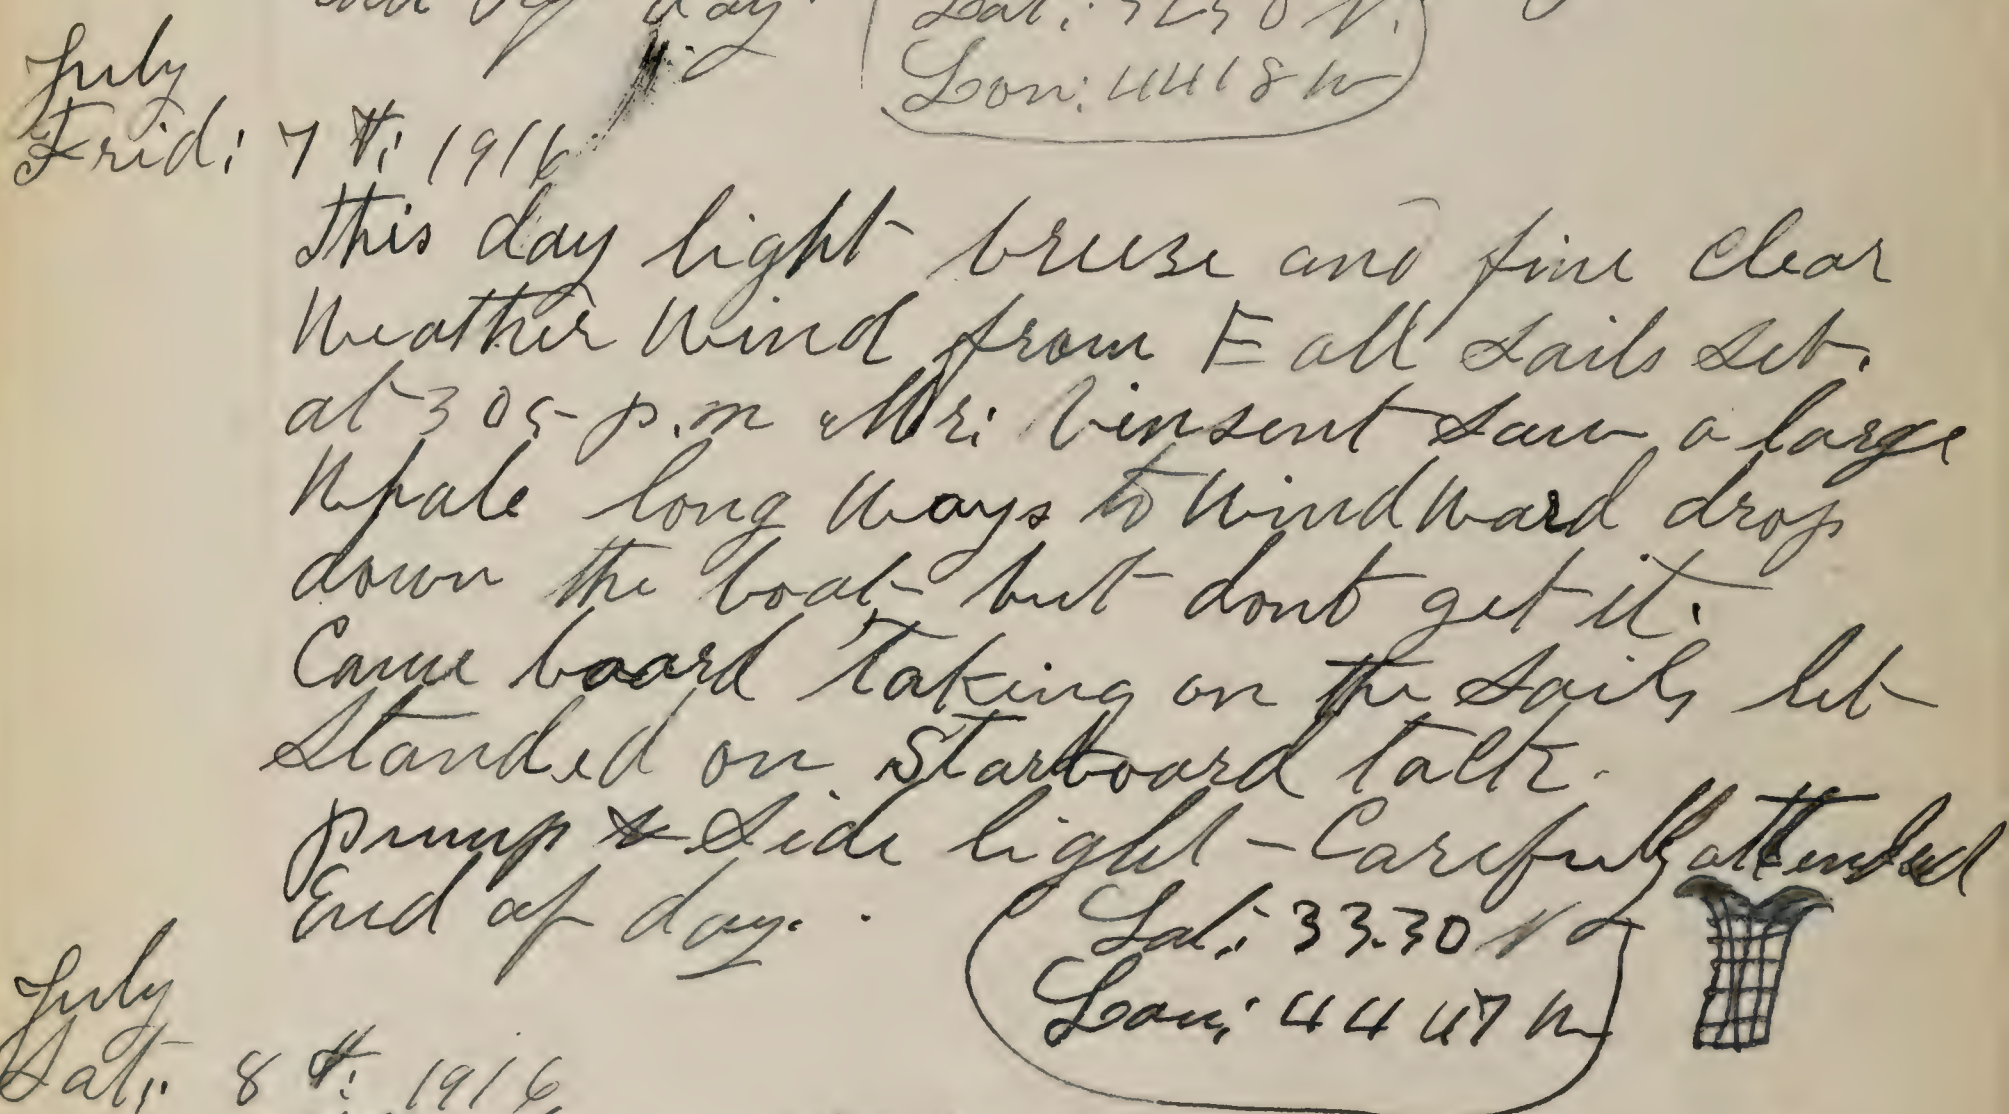 End of day.
Lat: 3230 N.
Lon: 4418 W
July
Frid: 7th: 1916
This day light breese and fine Clear
Weather Wind from E all sails set.
at 3 05 p.m Mr: Vinsent saw a large
Whale long Ways to WindWard drop
down the boat but dont get it.
Came board Taking on the sails let
standed on Starboard talk.
pump & side light - Carefully attended
End of day.
Lat: 33.30 N
Lon: 44 47 W
July
Sat: 8th: 1916